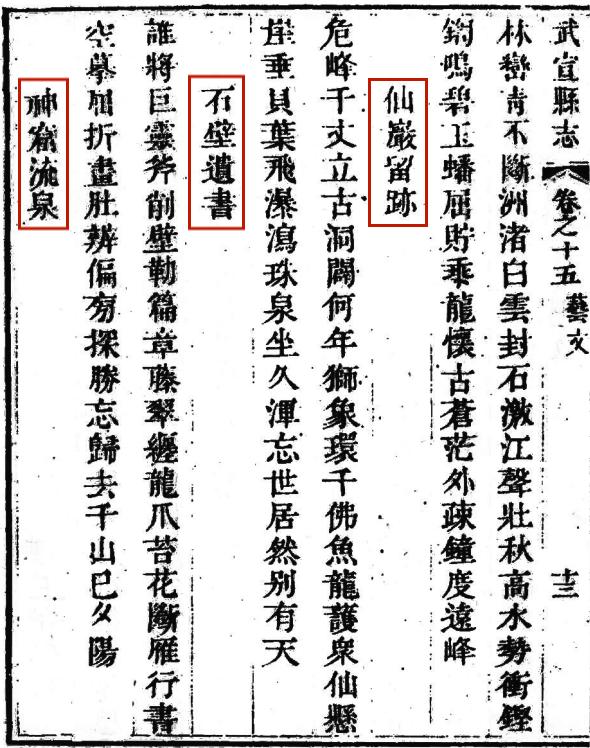 武宣縣志 卷之十五 藝文 十三
林巒青不斷洲渚白雲封石激江聲壯秋高水勢衝鏗
鍧鳴碧玉蟠屈貯乖龍懷古蒼茫外疎鐘度遠峰
仙巖留跡
危峰千丈立古洞闢何年獅象環千佛魚龍護衆仙懸
崖垂貝葉飛瀑瀉珠泉坐久渾忘世居然別有天
石壁遺書
誰將巨靈斧削壁勒篇章藤翠纏龍爪苔花斷雁行書
空摹屈折畫肚辨偏旁探勝忘歸去千山已夕陽
神窩流泉